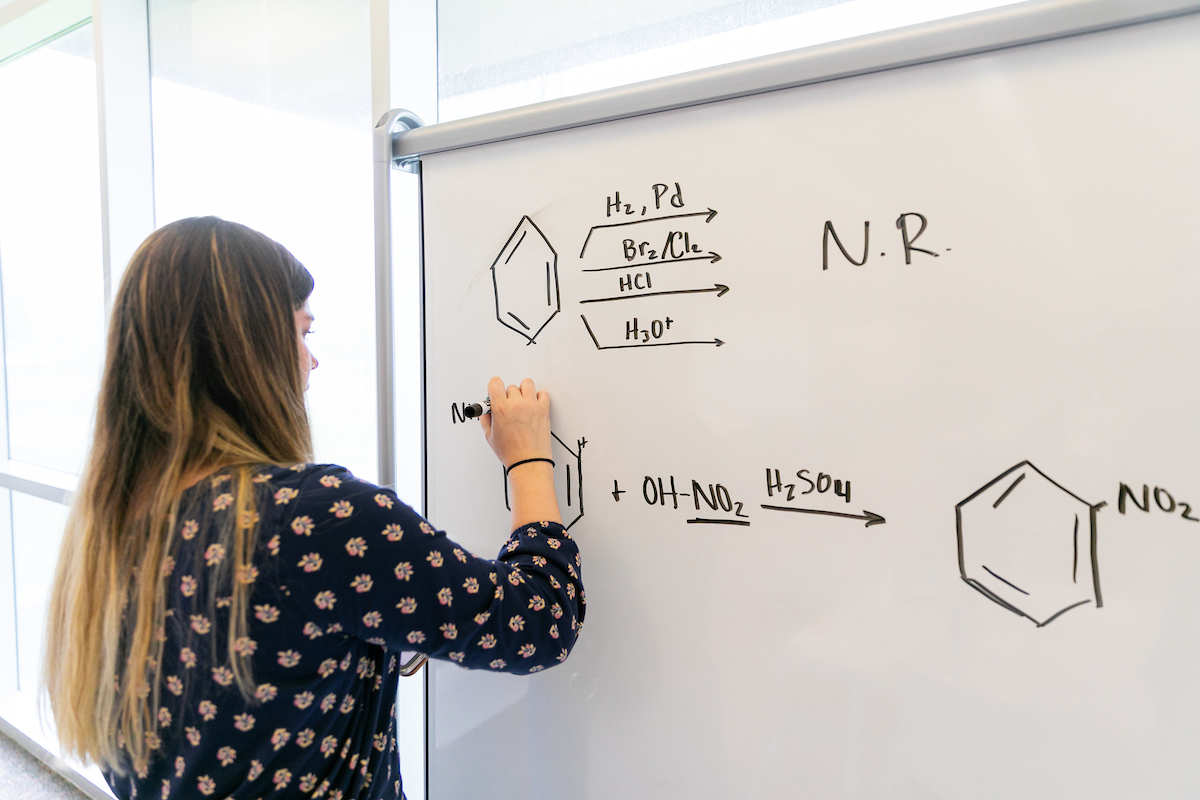 H₂, Pd
Br₂/Cl₂
HCl
H₃O⁺
N.R.
H
+ OH-NO₂
H₂SO₄
NO₂